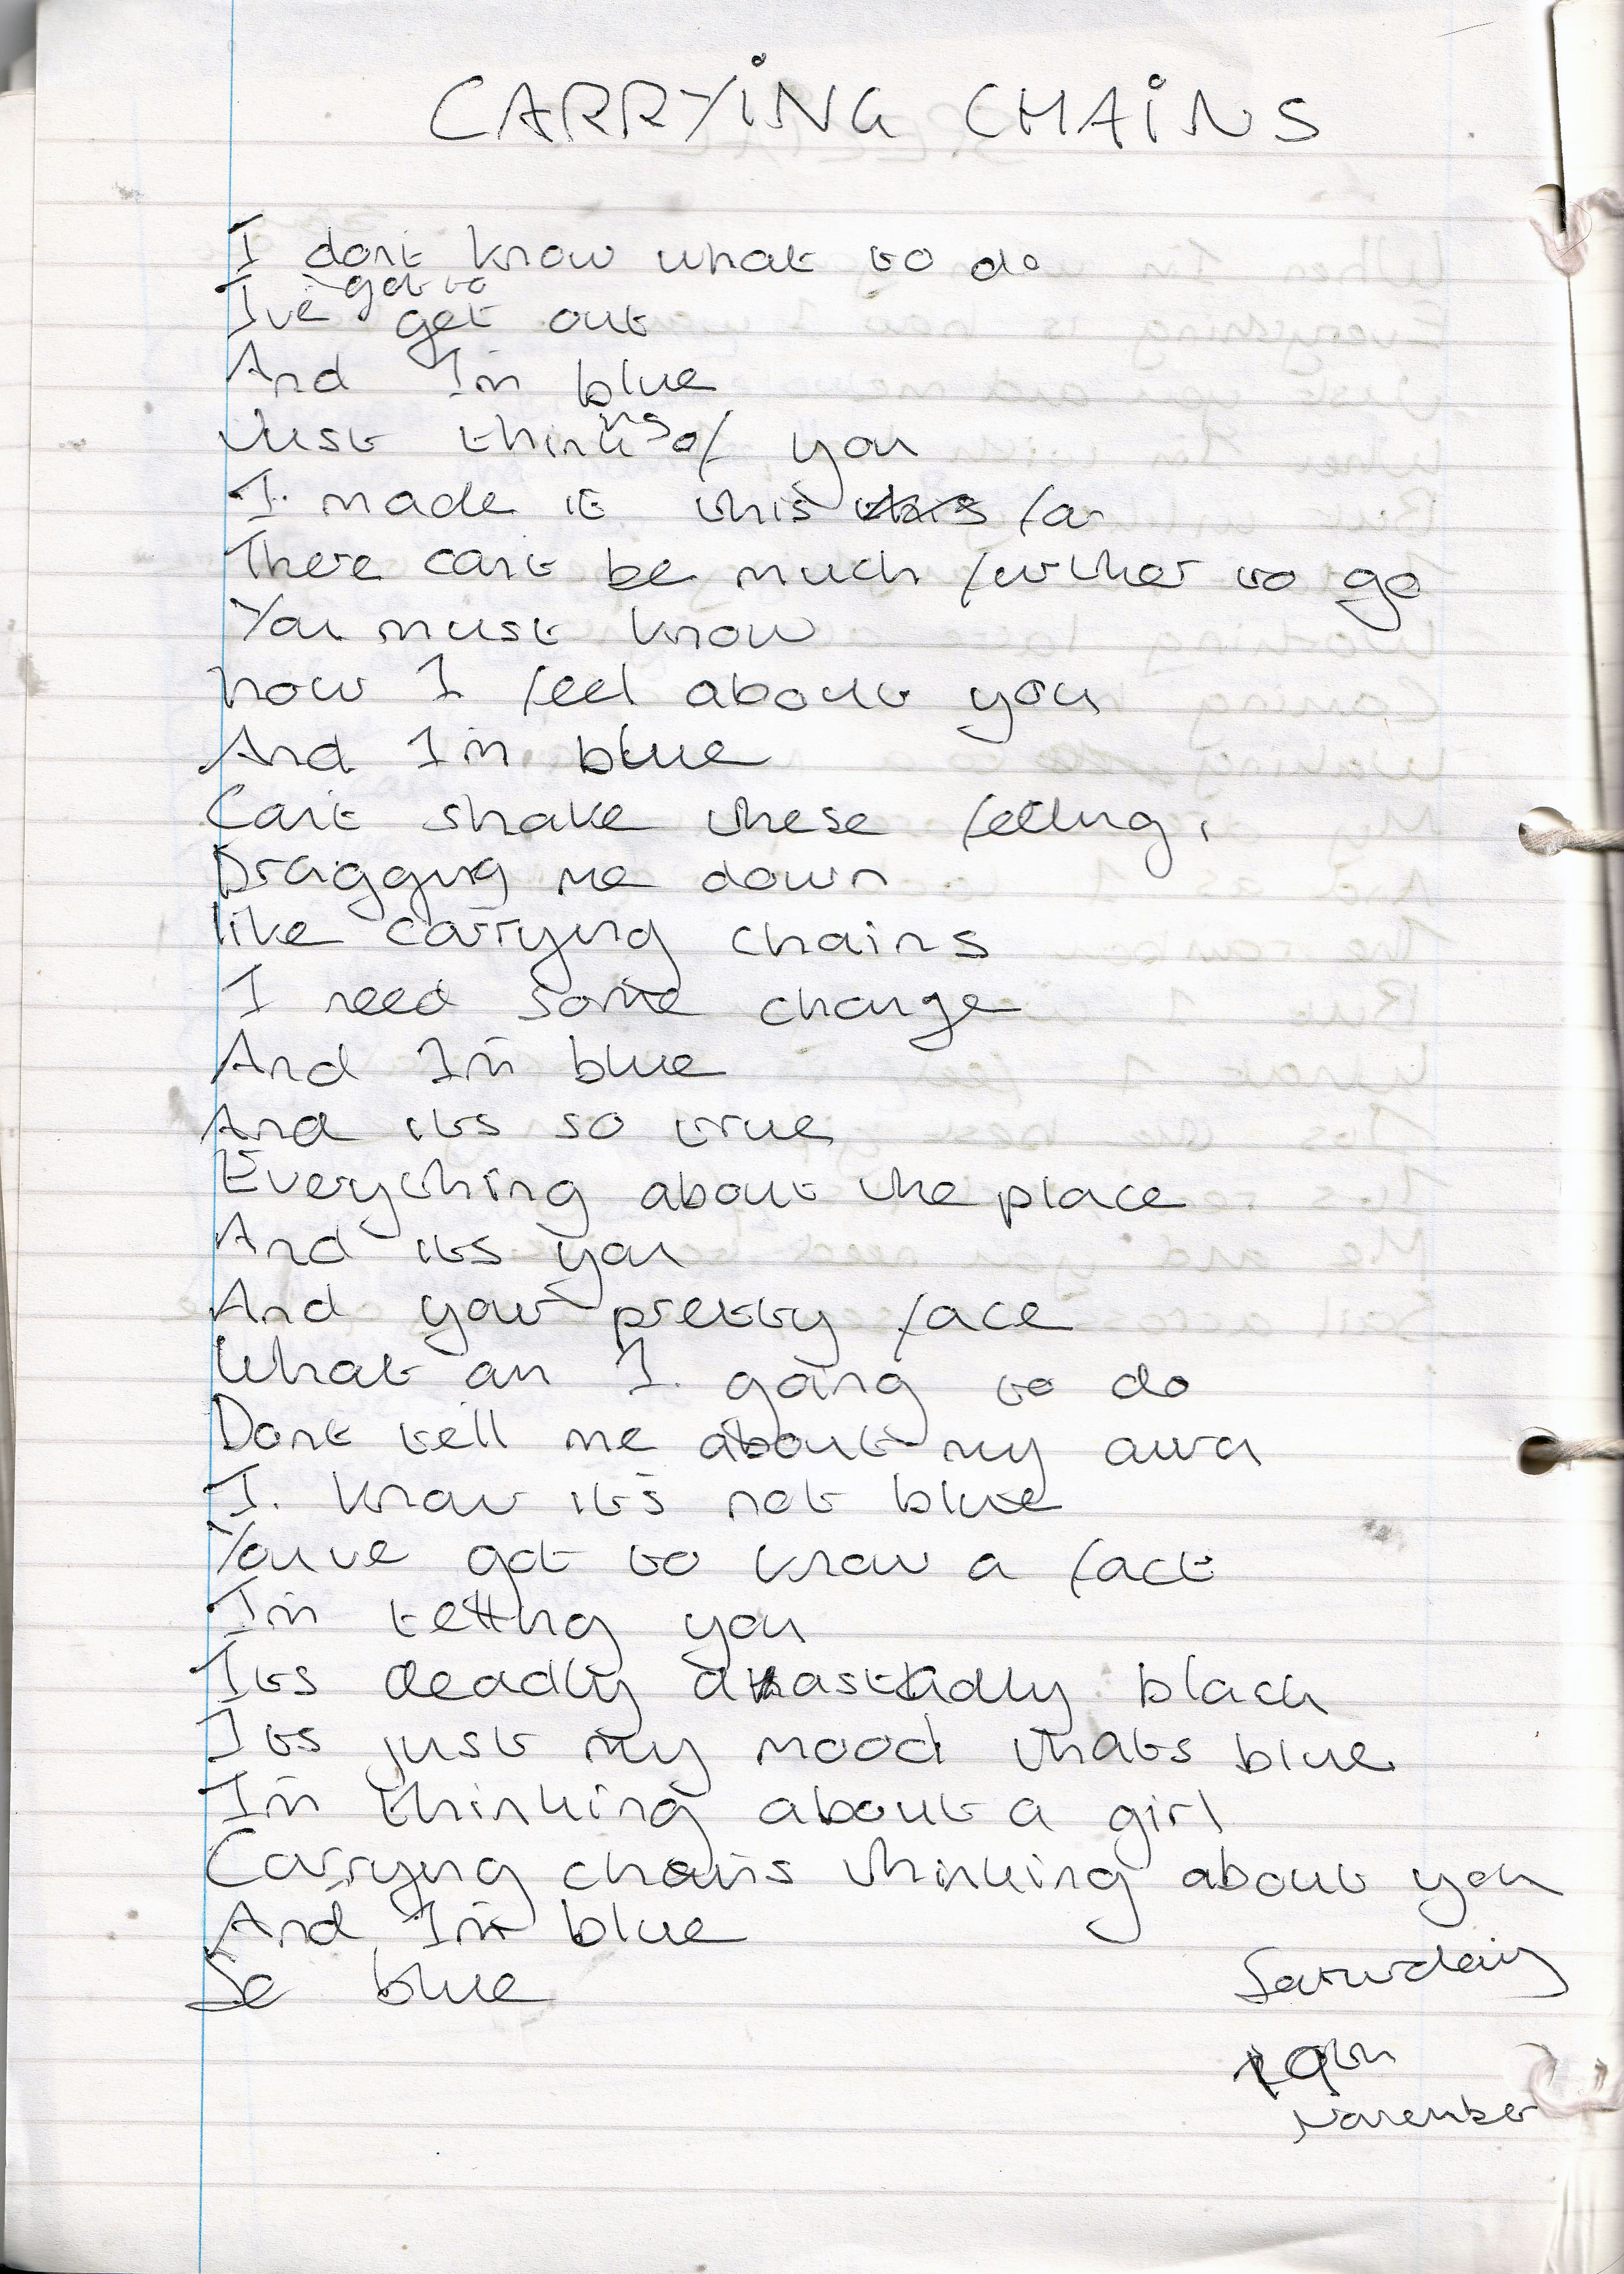 CARRYING CHAINS
I dont know what to do
I've got to get out
And I'm blue
Just thinking of you
I made it this this far
There cant be much further to go
You must know
how I feel about you
And I'm blue
Cant shake these feeling,
Dragging me down
like carrying chains
I need some change
And I'm blue
And its so true
Everything about the place
And its you
And your pretty face
What am I going to do
Dont tell me about my aura
I know its not blue
You've got to know a fact
I'm telling you
Its deadly black
Its just my mood thats blue
I'm thinking about a girl
Carrying chains thinking about you
And I'm blue
So blue
Saturday
19th
November